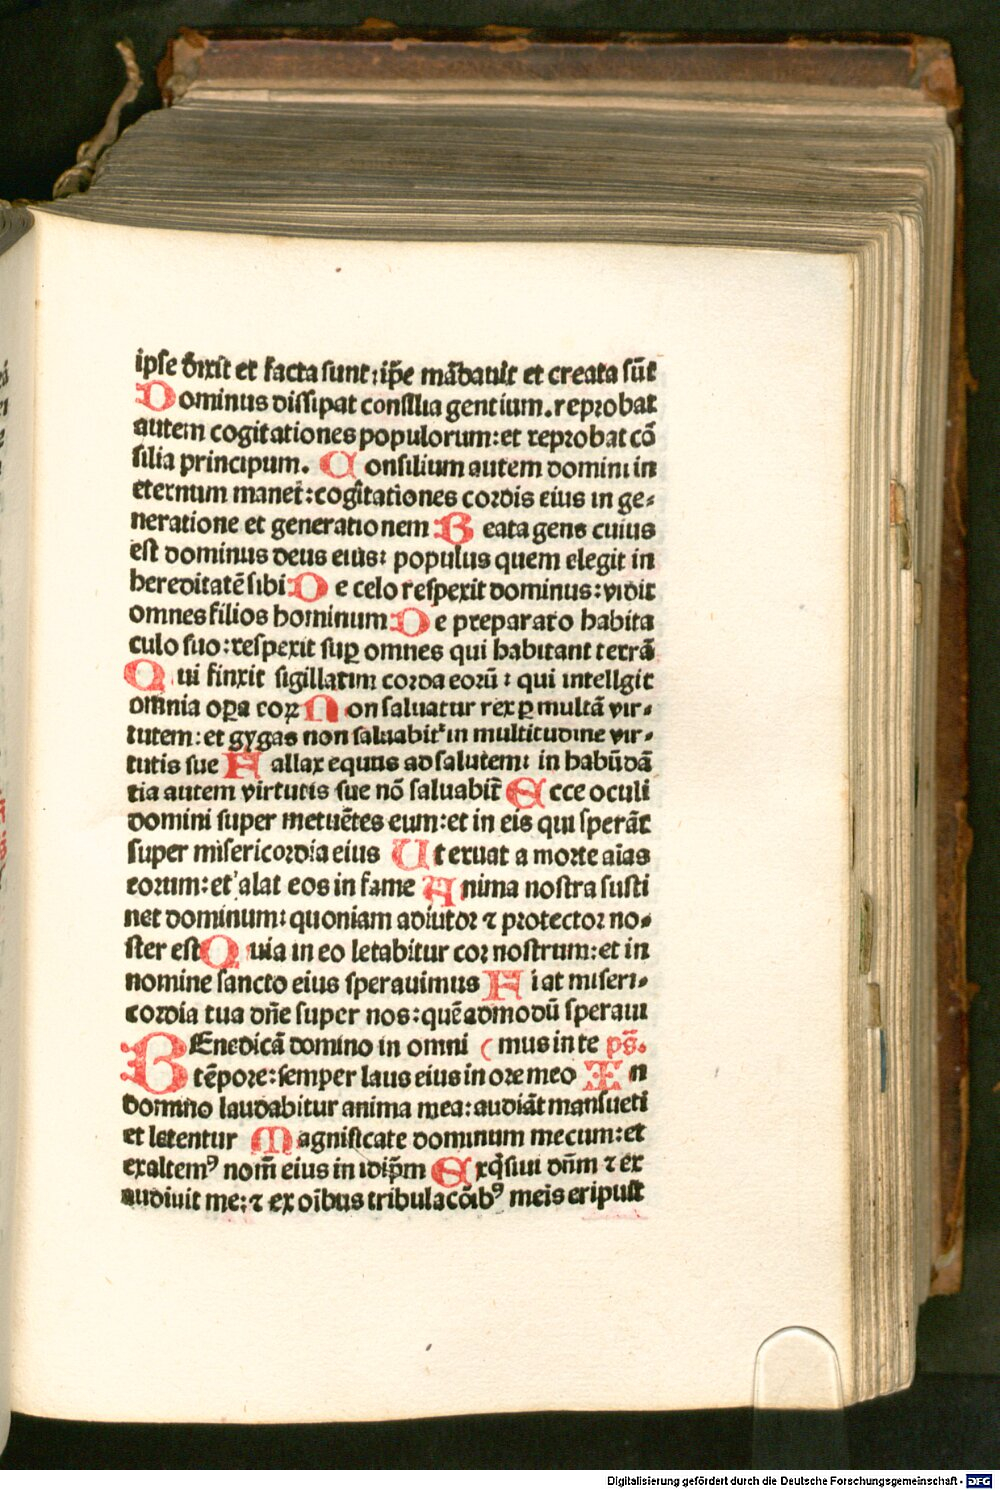 ipse dixit et facta sunt: ip̃e mãdauit et creata sũt
Dominus dissipat consilia gentium. reprobat
autem cogitationes populorum: et reprobat cõ
silia principum. Consilium autem domini in
eternum manet: cogitationes cordis eius in ge-
neratione et generationem Beata gens cuius
est dominus deus eius: populus quem elegit in
hereditatẽ sibi De celo respexit dominus: vidit
omnes filios hominum De preparato habita
culo suo: respexit suꝑ omnes qui habitant terrã
Qui finxit sigillatim corda eorũ: qui intellgit
omnia oꝑa eoꝝ Non saluatur rex ꝑ multã vir-
tutem: et gygas non saluabit᷑ in multitudine vir-
tutis sue Fallax equus ad salutem: in habũdã
tia autem virtutis sue nõ saluabit̃ Ecce oculi
domini super metuẽtes eum: et in eis qui sperãt
super misericordia eius Ut eruat a morte aĩas
eorum: et alat eos in fame Anima nostra susti
net dominum: quoniam adiutor ⁊ protector no-
ster est Quia in eo letabitur cor nostrum: et in
nomine sancto eius sperauimus Fiat miseri-
cordia tua dñe super nos: quẽadmodũ speraui
BEnedicã domino in omni ( mus in te ps̃.
tẽpore: semper laus eius in ore meo In
domino laudabitur anima mea: audiãt mansueti
et letentur Magnificate dominum mecum: et
exaltemꝰ nom̃ eius in idip̃m Exq̃siui dñm ⁊ ex
audiuit me: ⁊ ex oĩbus tribulacõibꝰ meis eripuit
Digitalisierung gefördert durch die Deutsche Forschungsgemeinschaft - DFG